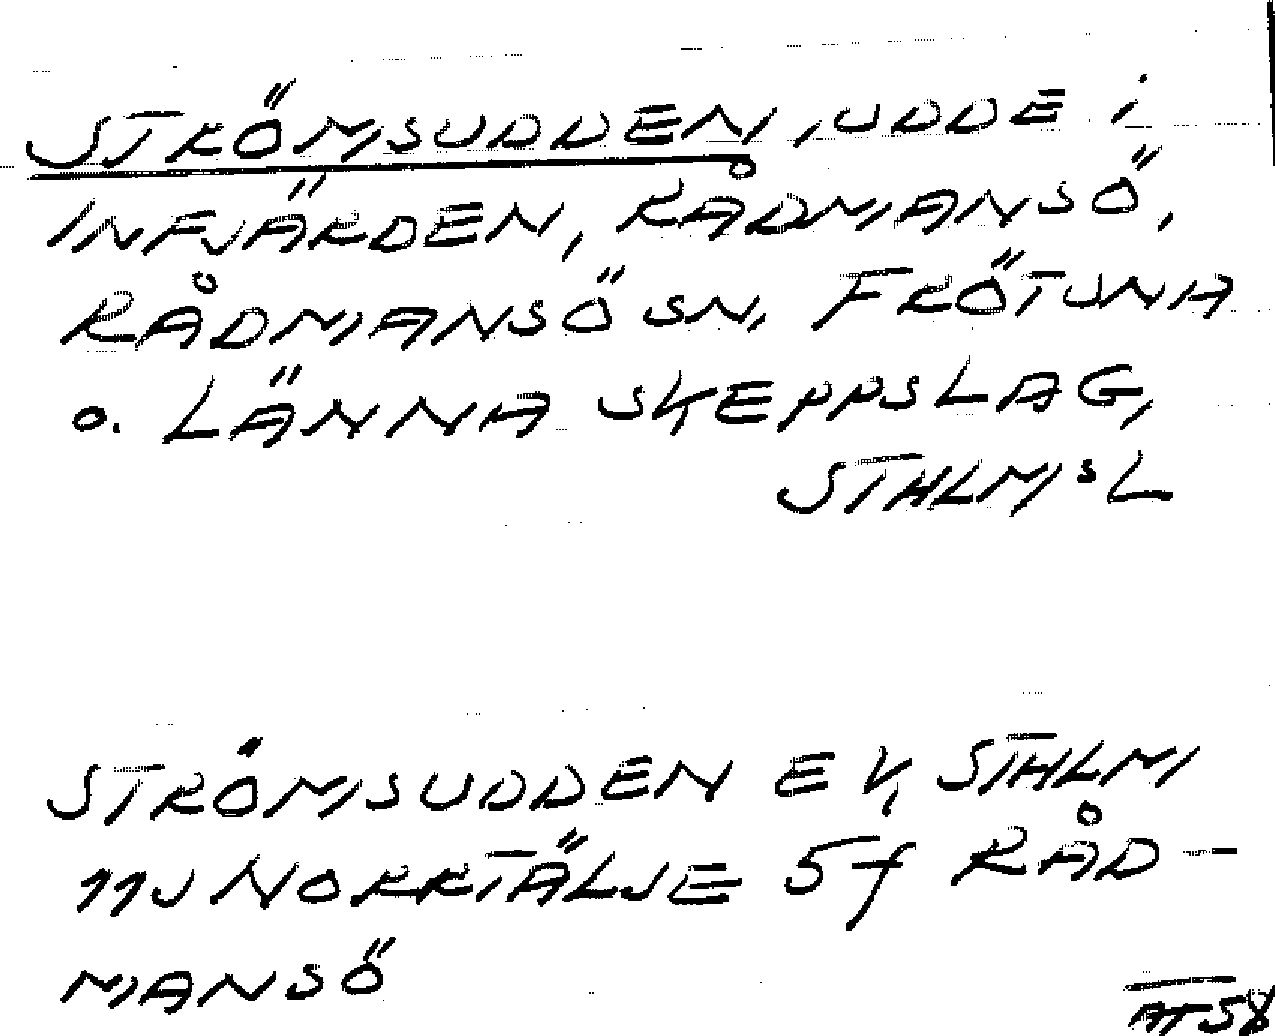 STRÖMSUDDEN, UDDE i
INFJÄRDEN, RÅDMANSÖ,
RÅDMANSÖ SN, FRÖTUNA
O. LÄNNA SKEPPSLAG,
STHLMS L
STRÖMSUDDEN EK STHLM
11J NORRTÄLJE 5f RÅD-
MANSÖ